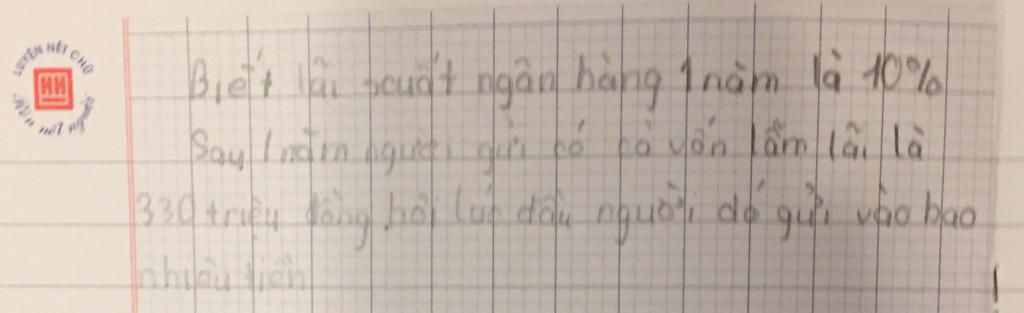 LUYỆN NÉT CHỮ
RÈN NẾT NGƯỜI
Biết lãi xuất ngân hàng 1 năm là 10%
Say 1 năm người gửi có cả vốn lẫm lãi là
330 triệu đồng hỏi lúc đầu người đó gửi vào bao
nhiêu tiền